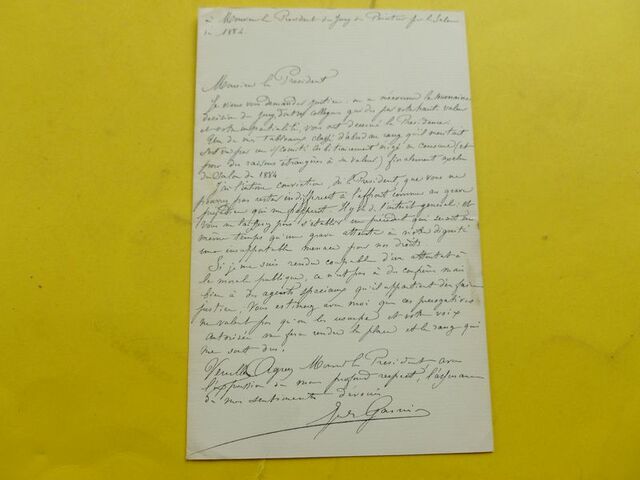 à Monsieur le Président du Jury de Peinture pour le Salon
de 1884.
Monsieur le Président
Je viens vous demander justice : on a méconnu la souveraine
décision du Jury, dont vos collègues guidés par votre haute valeur
et votre impartialité, vous ont décerné la Présidence.
Un de mes Tableaux classé d'abord au rang qu'il méritait
s'est vu par un Comité arbitrairement érigé en censure (et
pour des raisons étrangères à sa valeur) finalement exclu
du Salon de 1884
J'ai l'intime conviction, M. le Président que vous ne
pourrez pas rester indifférent à l'affront comme au grave
préjudice qui me frappent. Il y va de l'intérêt général : et
vous ne laisserez pas s'établir un précédent qui serait en
même temps qu'une grave atteinte à notre dignité
une insupportable menace pour nos droits.
Si je me suis rendu coupable d'un attentat à
la morale publique, ce n'est pas à des confrères mais
bien à des agents spéciaux qu'il appartient d'en faire
justice. Vous estimez avec moi que ces prérogatives
ne valent pas qu'on les usurpe et votre voix
autorisée me fera rendre la place et le rang qui
me sont dus.
Veuillez Agréer Monsieur le Président, avec
l'expression de mon profond respect, l'assurance
de mes sentiments dévoués